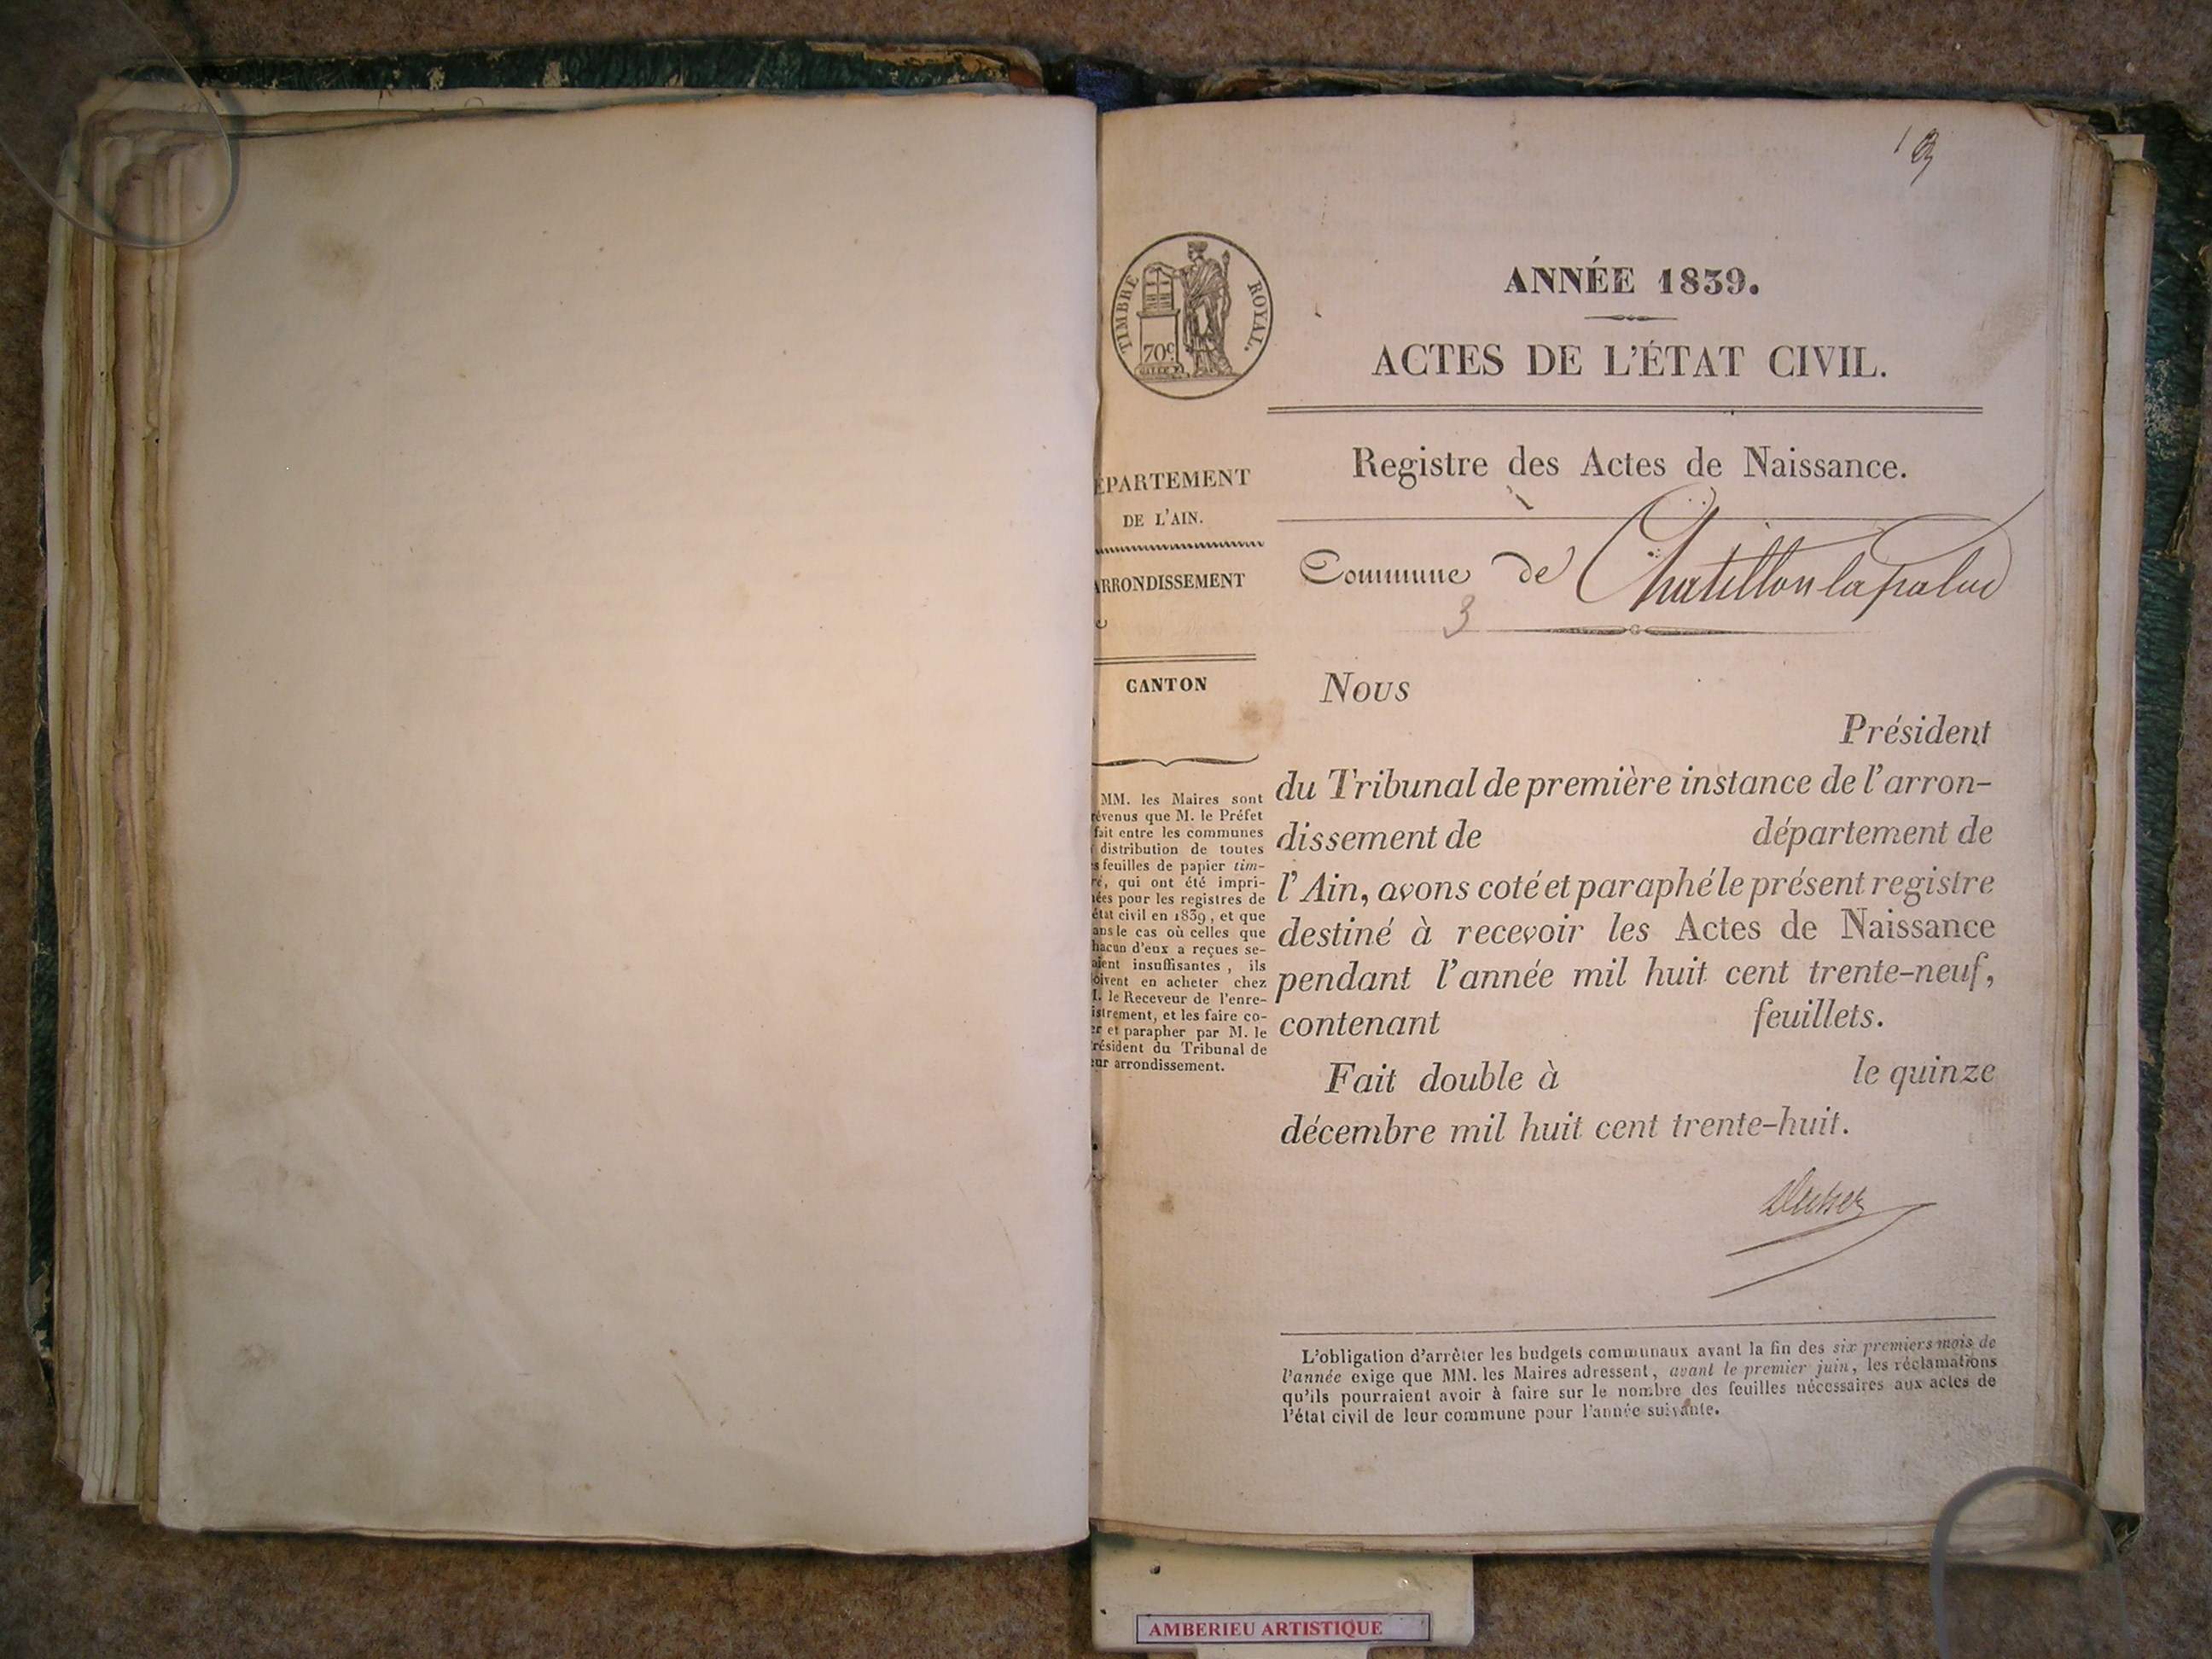 1
TIMBRE ROYAL.
70c
ANNÉE 1839.
ACTES DE L'ÉTAT CIVIL.
Registre des Actes de Naissance.
ÉPARTEMENT
DE L'AIN.
ARRONDISSEMENT
CANTON
MM. les Maires sont
révenus que M. le Préfet
fait entre les communes
distribution de toutes
s feuilles de papier tim-
ré, qui ont été impri-
ées pour les registres de
état civil en 1839, et que
ans le cas où celles que
hacun d'eux a reçues se-
aient insuffisantes, ils
oivent en acheter chez
M. le Receveur de l'enre-
istrement, et les faire co-
er et parapher par M. le
résident du Tribunal de
eur arrondissement.
Commune de Chatillon la palud
3
Nous
Président
du Tribunal de première instance de l'arron-
dissement de département de
l'Ain, avons coté et paraphé le présent registre
destiné à recevoir les Actes de Naissance
pendant l'année mil huit cent trente-neuf,
contenant feuillets.
Fait double à le quinze
décembre mil huit cent trente-huit.
L'obligation d'arrêter les budgets communaux avant la fin des six premiers mois de
l'année exige que MM. les Maires adressent, avant le premier juin, les réclamations
qu'ils pourraient avoir à faire sur le nombre des feuilles nécessaires aux actes de
l'état civil de leur commune pour l'année suivante.
AMBERIEU ARTISTIQUE